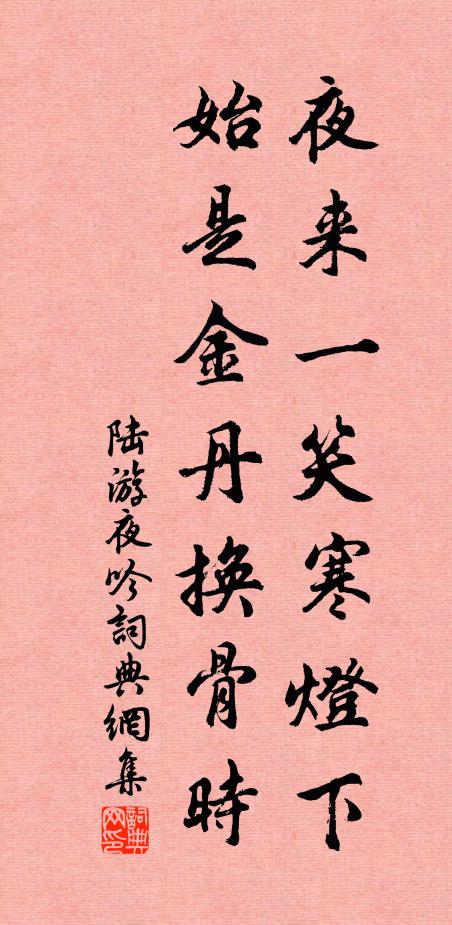 夜来一笑寒燈下
始是金丹換骨時
陆游夜吟詞典網集
詞典网印